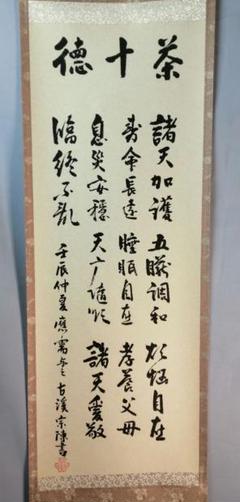 茶十德
諸天加護 五臓調和 煩悩自在
壽命長遠 睡眠自在 孝養父母
息災安穩 天魔隨心 諸天愛敬
臨終不乱
壬辰仲夏應需 古溪宗陳書